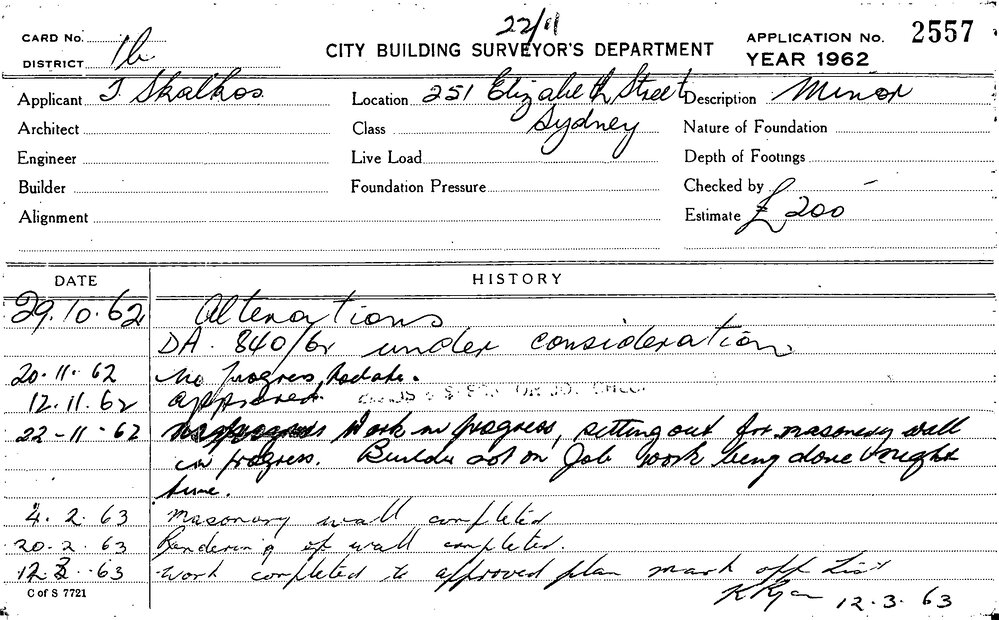 22/11
CARD No. 1b
DISTRICT
CITY BUILDING SURVEYOR'S DEPARTMENT
APPLICATION No. 2557
YEAR 1962
Applicant T Skalkos
Location 251 Elizabeth Street
Sydney
Description Minor
Architect
Class
Nature of Foundation
Engineer
Live Load
Depth of Footings
Builder
Foundation Pressure
Checked by –
Alignment
Estimate £ 200
DATE HISTORY
29.10.62 Alterations
DA. 840/62 under consideration
20.11.62 No progress to date.
12.11.62 approved.
22-11-62 Work in progress, setting out for masonry wall
in progress. Builder not on Job work being done
time.
4.2.63 Masonry wall completed
20.2.63 Rendering of wall completed.
12.3.63 Work completed to approved plan mark off List
K Ryan 12.3.63
C of S 7721